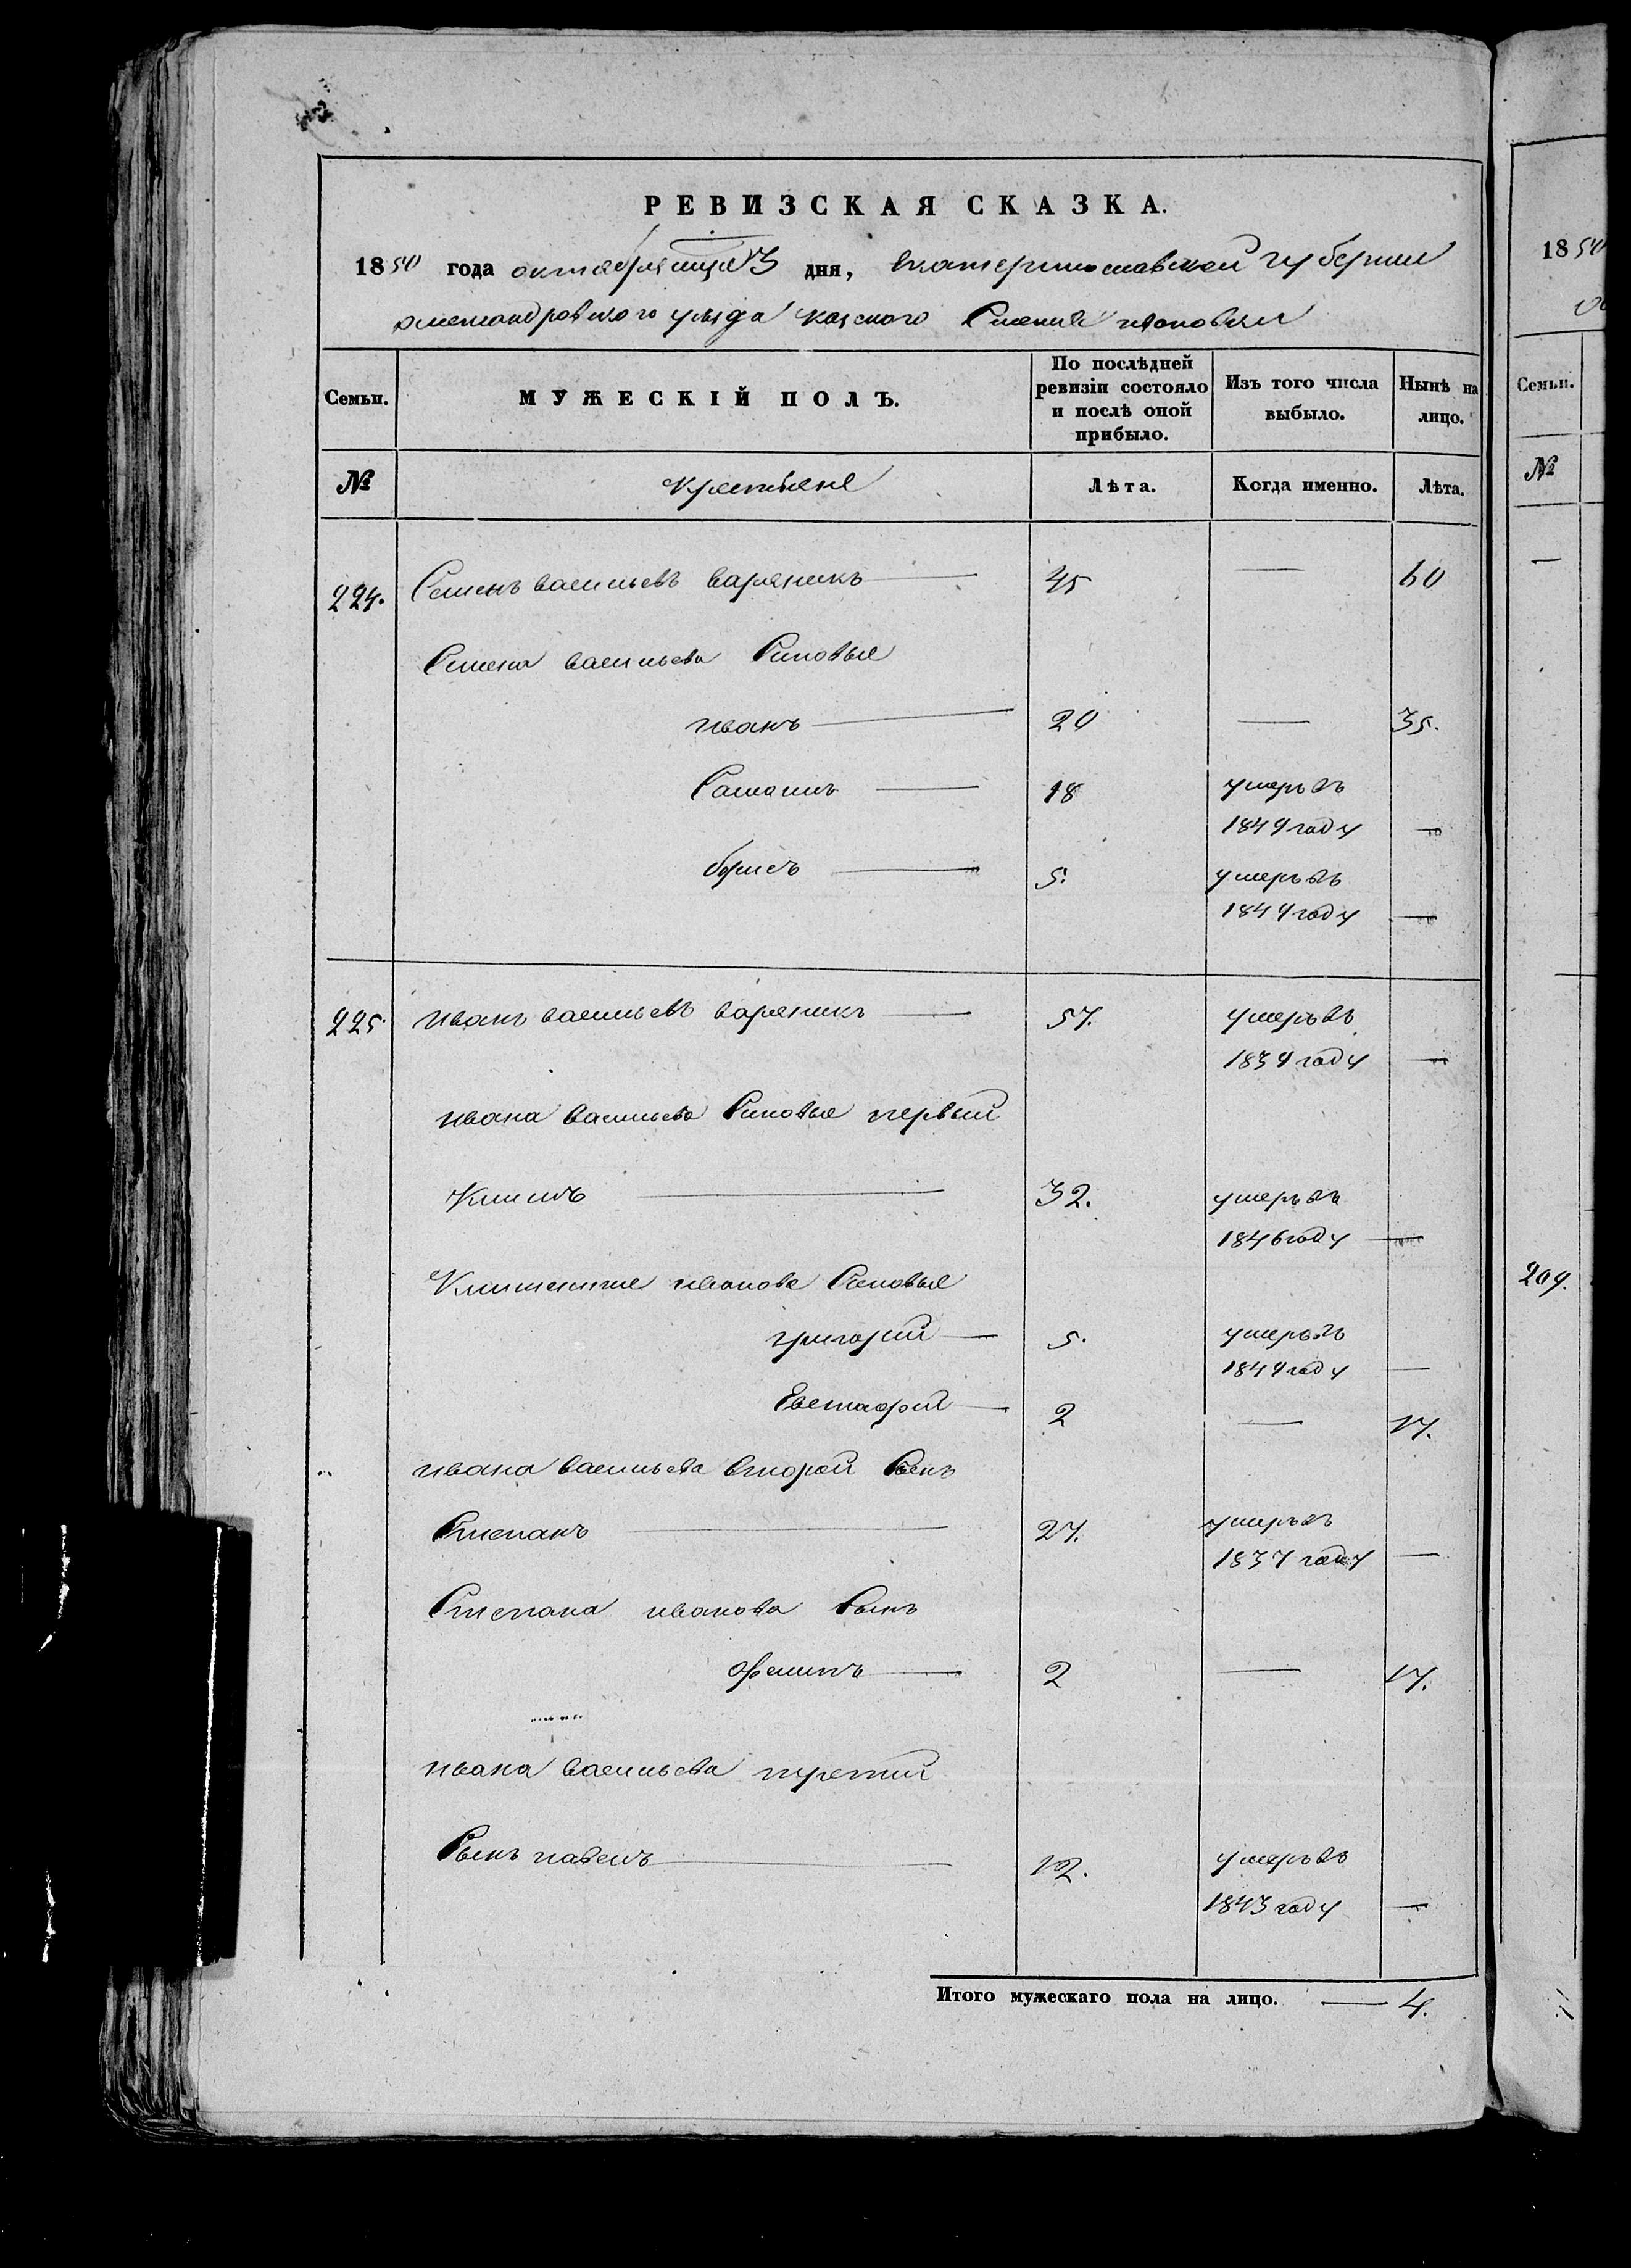 РЕВИЗСКАЯ СКАЗКА.
1850 года октября месяца 3 дня, Екатеринославской губернии
александровского уезда казеного Селения ивановки
Семьи. МУЖЕСКІЙ ПОЛЪ. По послѣдней ревизіи состояло и послѣ оной прибыло. Изъ того числа выбыло. Нынѣ на лицо.
№ Крестьяне Лѣта. Когда именно. Лѣта.
224. Семенъ васильевъ вареникъ 45 — 60
Семена васильева Синовья
иванъ 20 — 35.
18 умеръ въ
1849 году —
борисъ 5. умеръ въ
1849 году —
225. иванъ васильевъ вареникъ 57. умеръ въ
1839 году —
ивана васильева Синовья первый
Климъ 32. умеръ въ
1846 году —
иванова Синовья
григорий 5. умеръ въ
1849 году —
Евстафий 2 — 17.
ивана васильева второй Сынъ
Степанъ 27. умеръ въ
1837 году —
Степана иванова Сынъ
2 — 17.
ивана васильева третий
Сынъ павелъ 12. умеръ въ
1843 году —
Итого мужескаго пола на лицо. — 4.
1850
Семьи.
№
209.